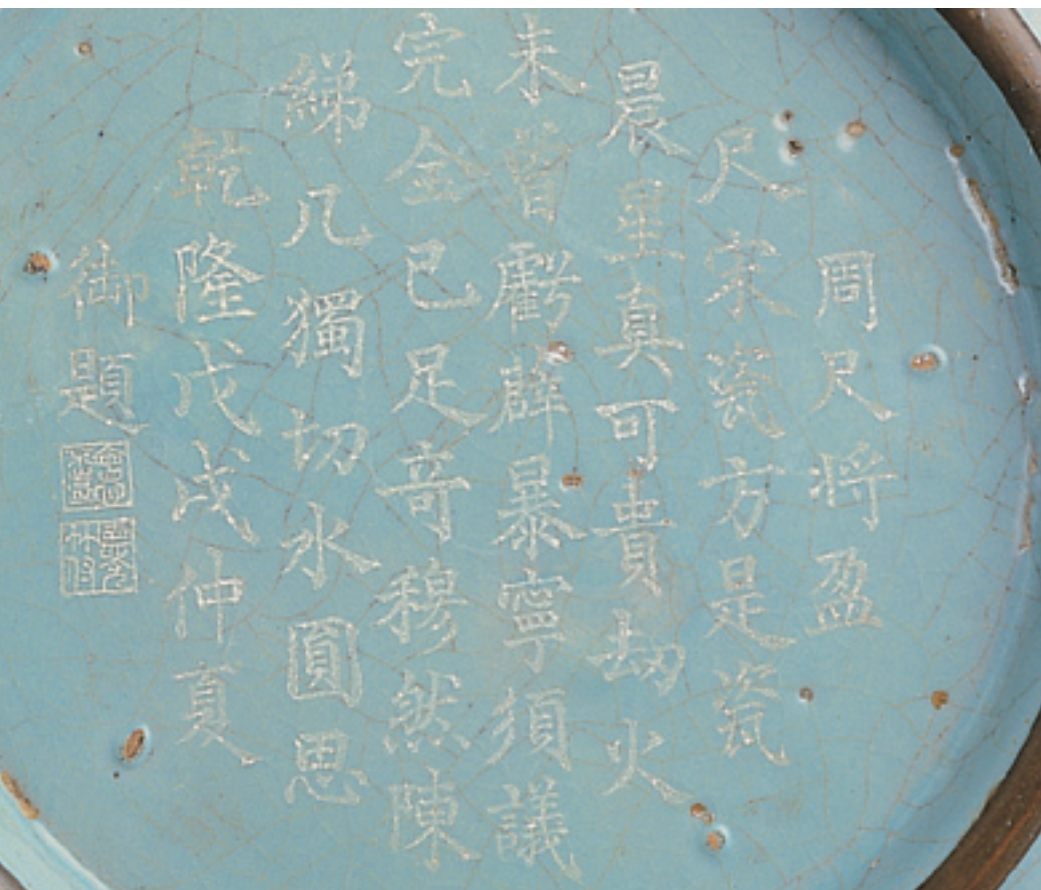 周尺将盈
尺宋瓷方是瓷
晨星真可貴劫火
未曾虧薜暴寧須議
完金已足竒穆然陳
綈几獨切水圓思
乾隆戊戌仲夏
御題